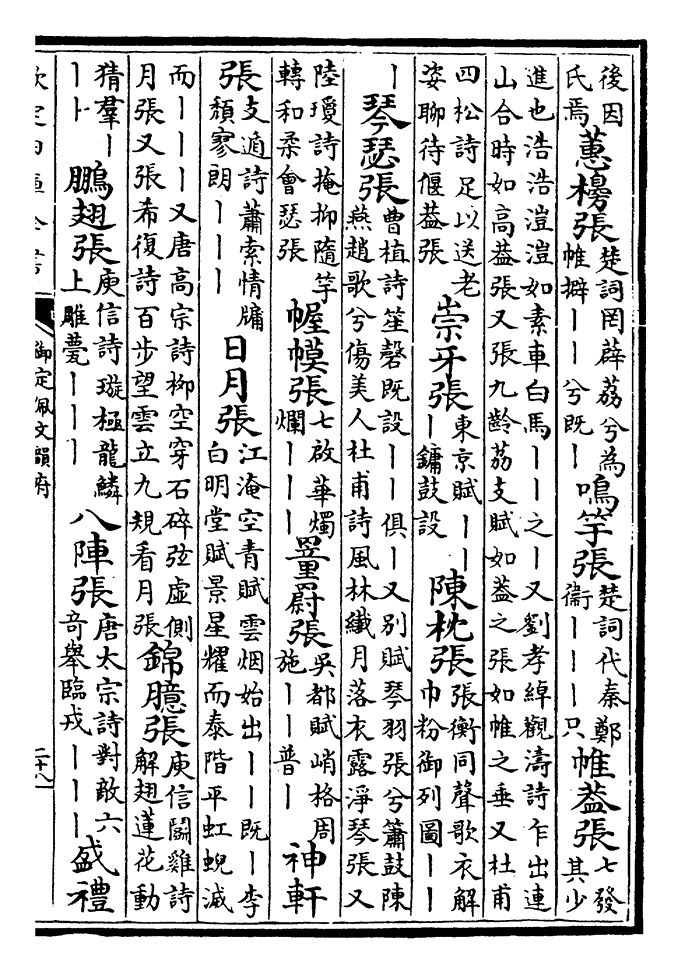 後因氏焉 蕙櫋張 楚詞罔薜荔兮為帷擗丨丨兮既丨 鳴竽張 楚詞代秦鄭衞丨丨丨只 帷葢張 七發其少
進也浩浩溰溰如素車白馬丨丨之丨又劉孝綽觀濤詩乍出連
山合時如高葢張又張九齡荔支賦如葢之張如帷之垂又杜甫
四松詩足以送老姿聊待偃葢張 崇牙張 東京賦丨丨丨鏞鼓設 陳枕張 張衡同聲歌衣解巾粉御列圖丨丨
丨 琴瑟張 曹植詩笙磬既設丨丨俱丨又别賦琴羽張兮簫鼓陳燕趙歌兮傷美人杜甫詩風林纖月落衣露淨琴張又
陸瓊詩掩抑隨竽轉和柔會瑟張 幄幙張 七啟華燭爛丨丨丨 罿罻張 吳都賦峭格周施丨丨普丨 神軒
張 支遁詩蕭索情牖頽寥朗丨丨丨 日月張 江淹空青賦雲烟始出丨丨既丨李白明堂賦景星耀而泰階平虹蜺滅
而丨丨丨又唐高宗詩柳空穿石碎弦虚側月張又張希復詩百步望雲立九規看月張 錦臆張 庾信鬭雞詩解翅蓮花動
猜羣丨丨丨 鵬翅張 庾信詩璇極龍鱗上雕甍丨丨丨 八陣張 唐太宗詩對敵六竒舉臨戎丨丨丨 盛禮
欽定四庫全書 御定佩文韻府 二十八